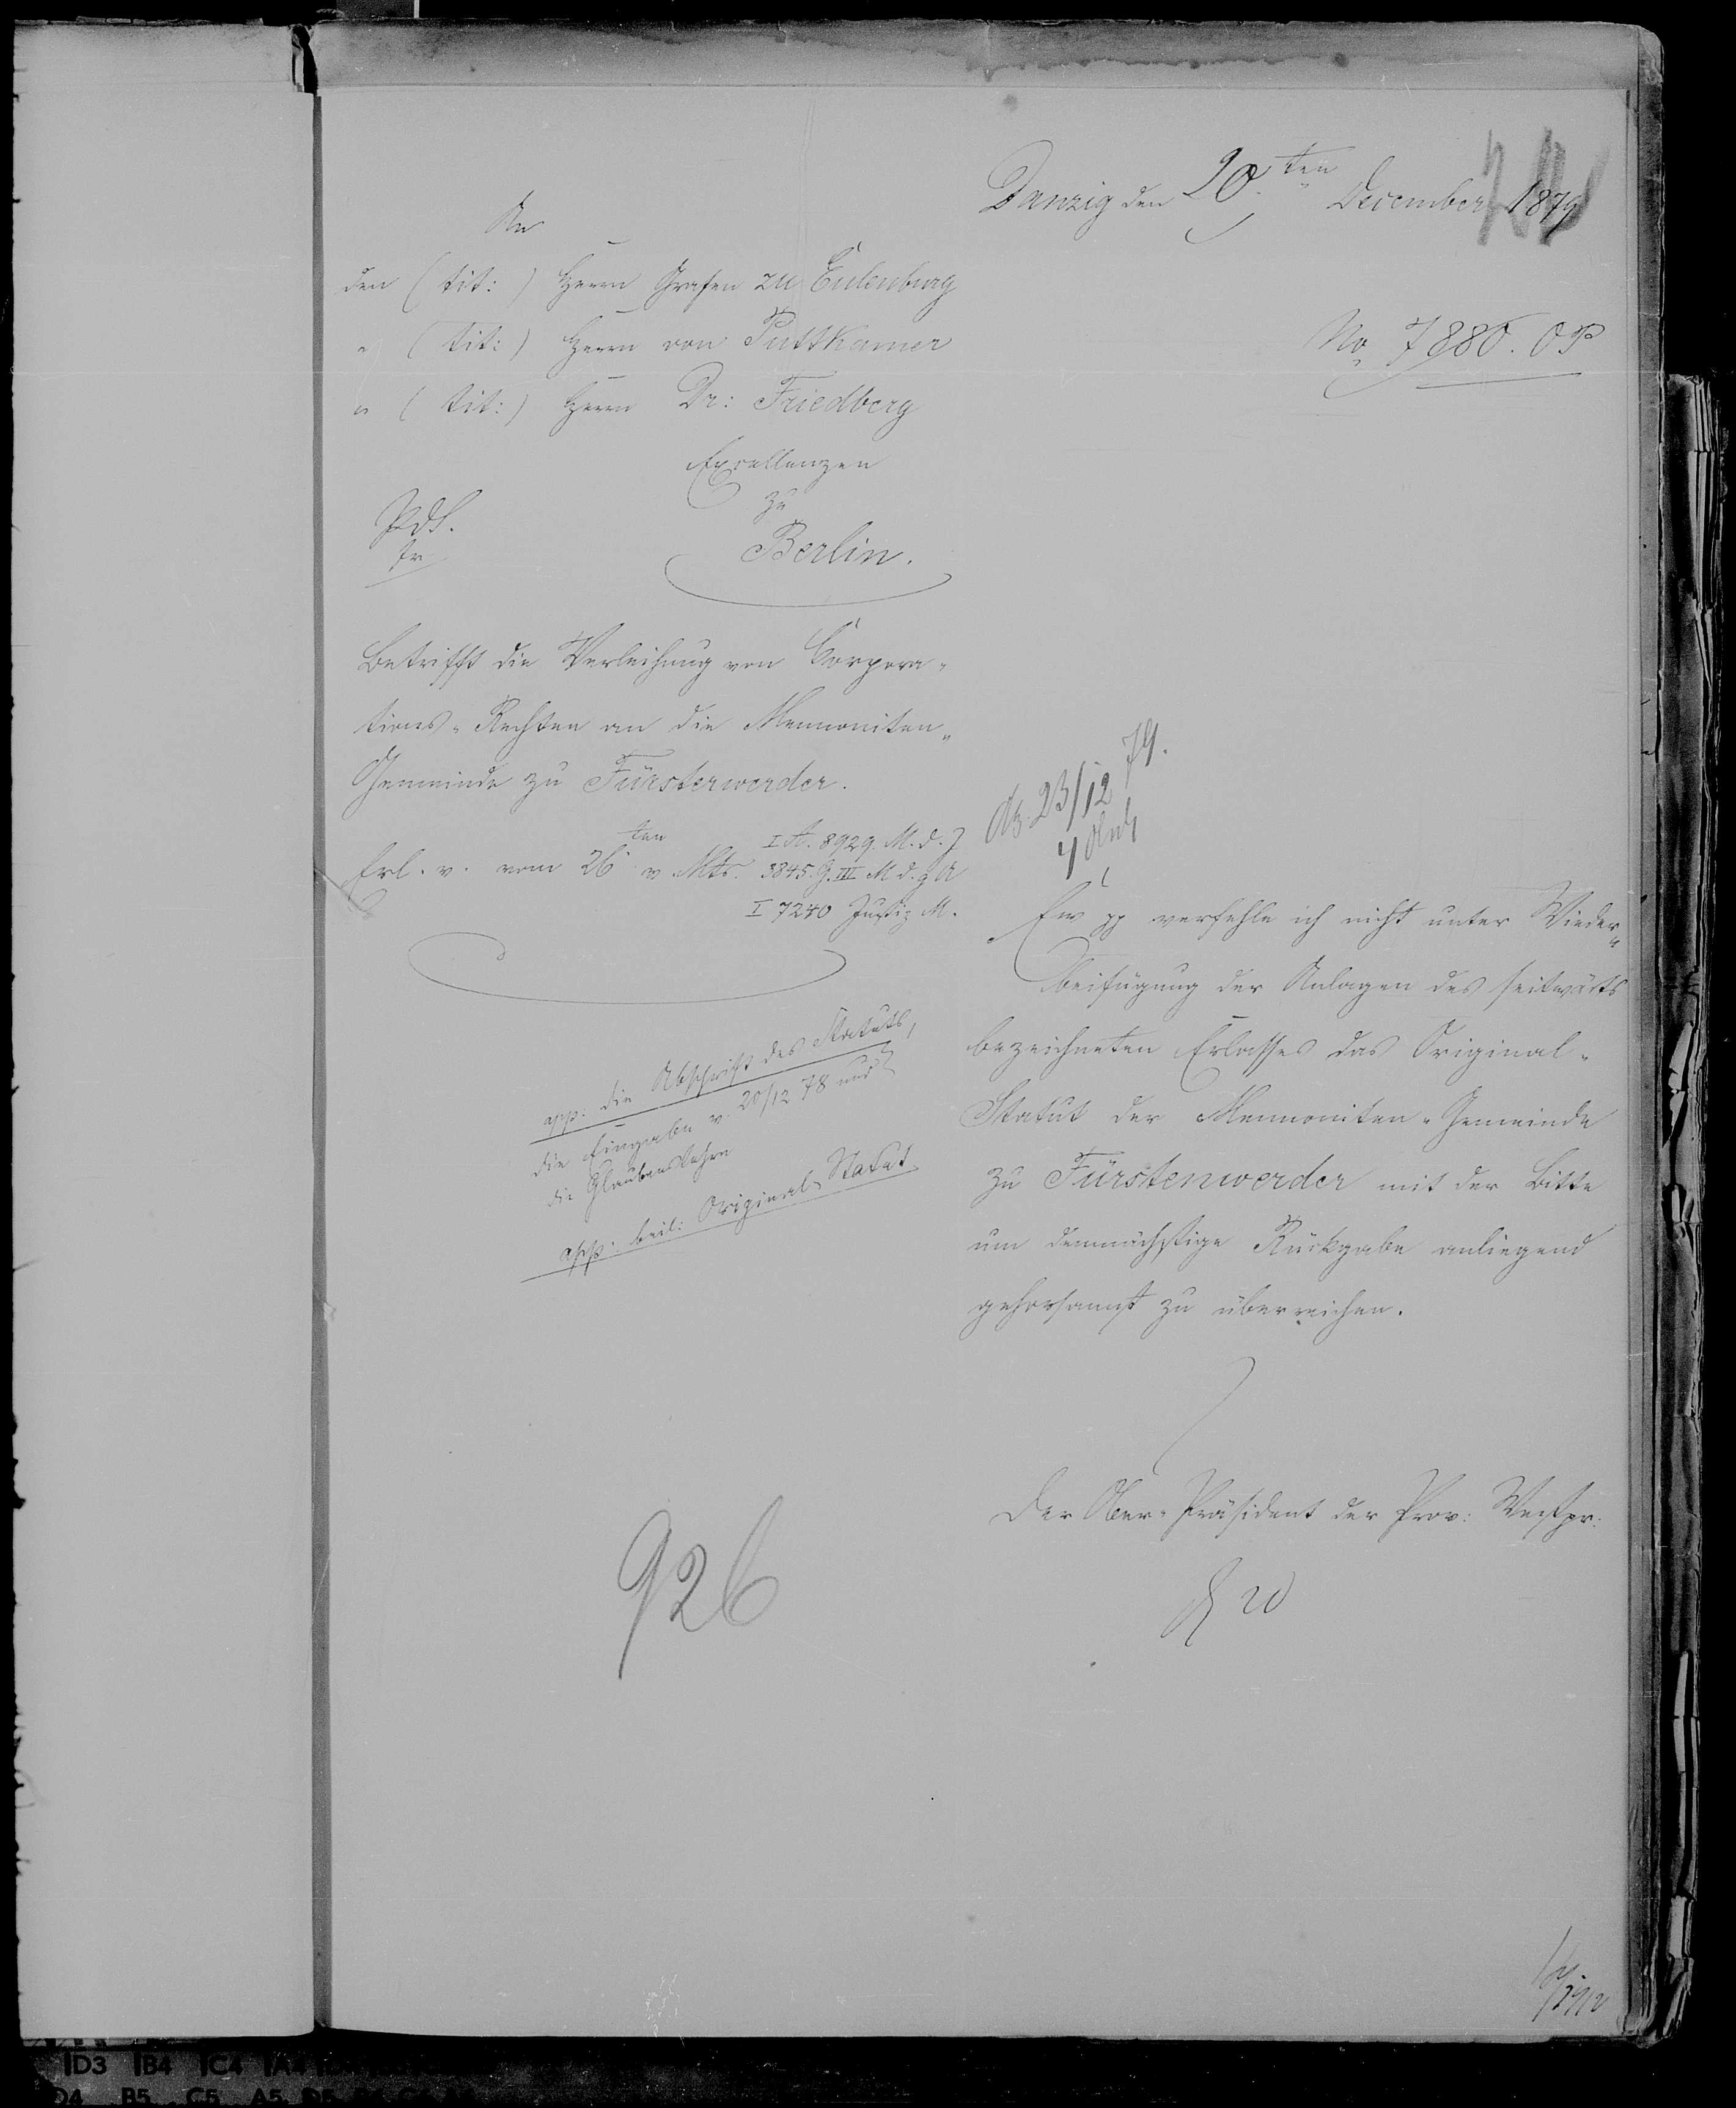 Danzig den 20ten December 1879
An
den (tit:) Herrn Grafen zu Eulenburg
" (tit:) Herrn von Puttkamer
" (tit:) Herrn Dr: Friedberg
Excellenzen
zu
Berlin.
No 7880. OP
Betrifft die Verleihung von Corpora-
tions-Rechten an die Mennoniten-
Gemeinde zu Fürstenwerder.
Erl. v. vom 26ten v Mts. I A. 8929. M. d. J
3845. G. III M d. g A
I 7240 Justiz M.
23/12 79.
Ew pp verfehle ich nicht unter Wieder-
beifügung der Anlagen des seitwärts
bezeichneten Erlasses das Original-
Statut der Mennoniten-Gemeinde
zu Fürstenwerder mit der Bitte
um demnächstige Rückgabe anliegend
gehorsamst zu überreichen.
app: die Abschrift des Statuts,
die Eingabe v 20/12 78 und
die Glaubenslehre
app: beil: Original Statut
Der Ober-Präsident der Prov: Westpr.
926